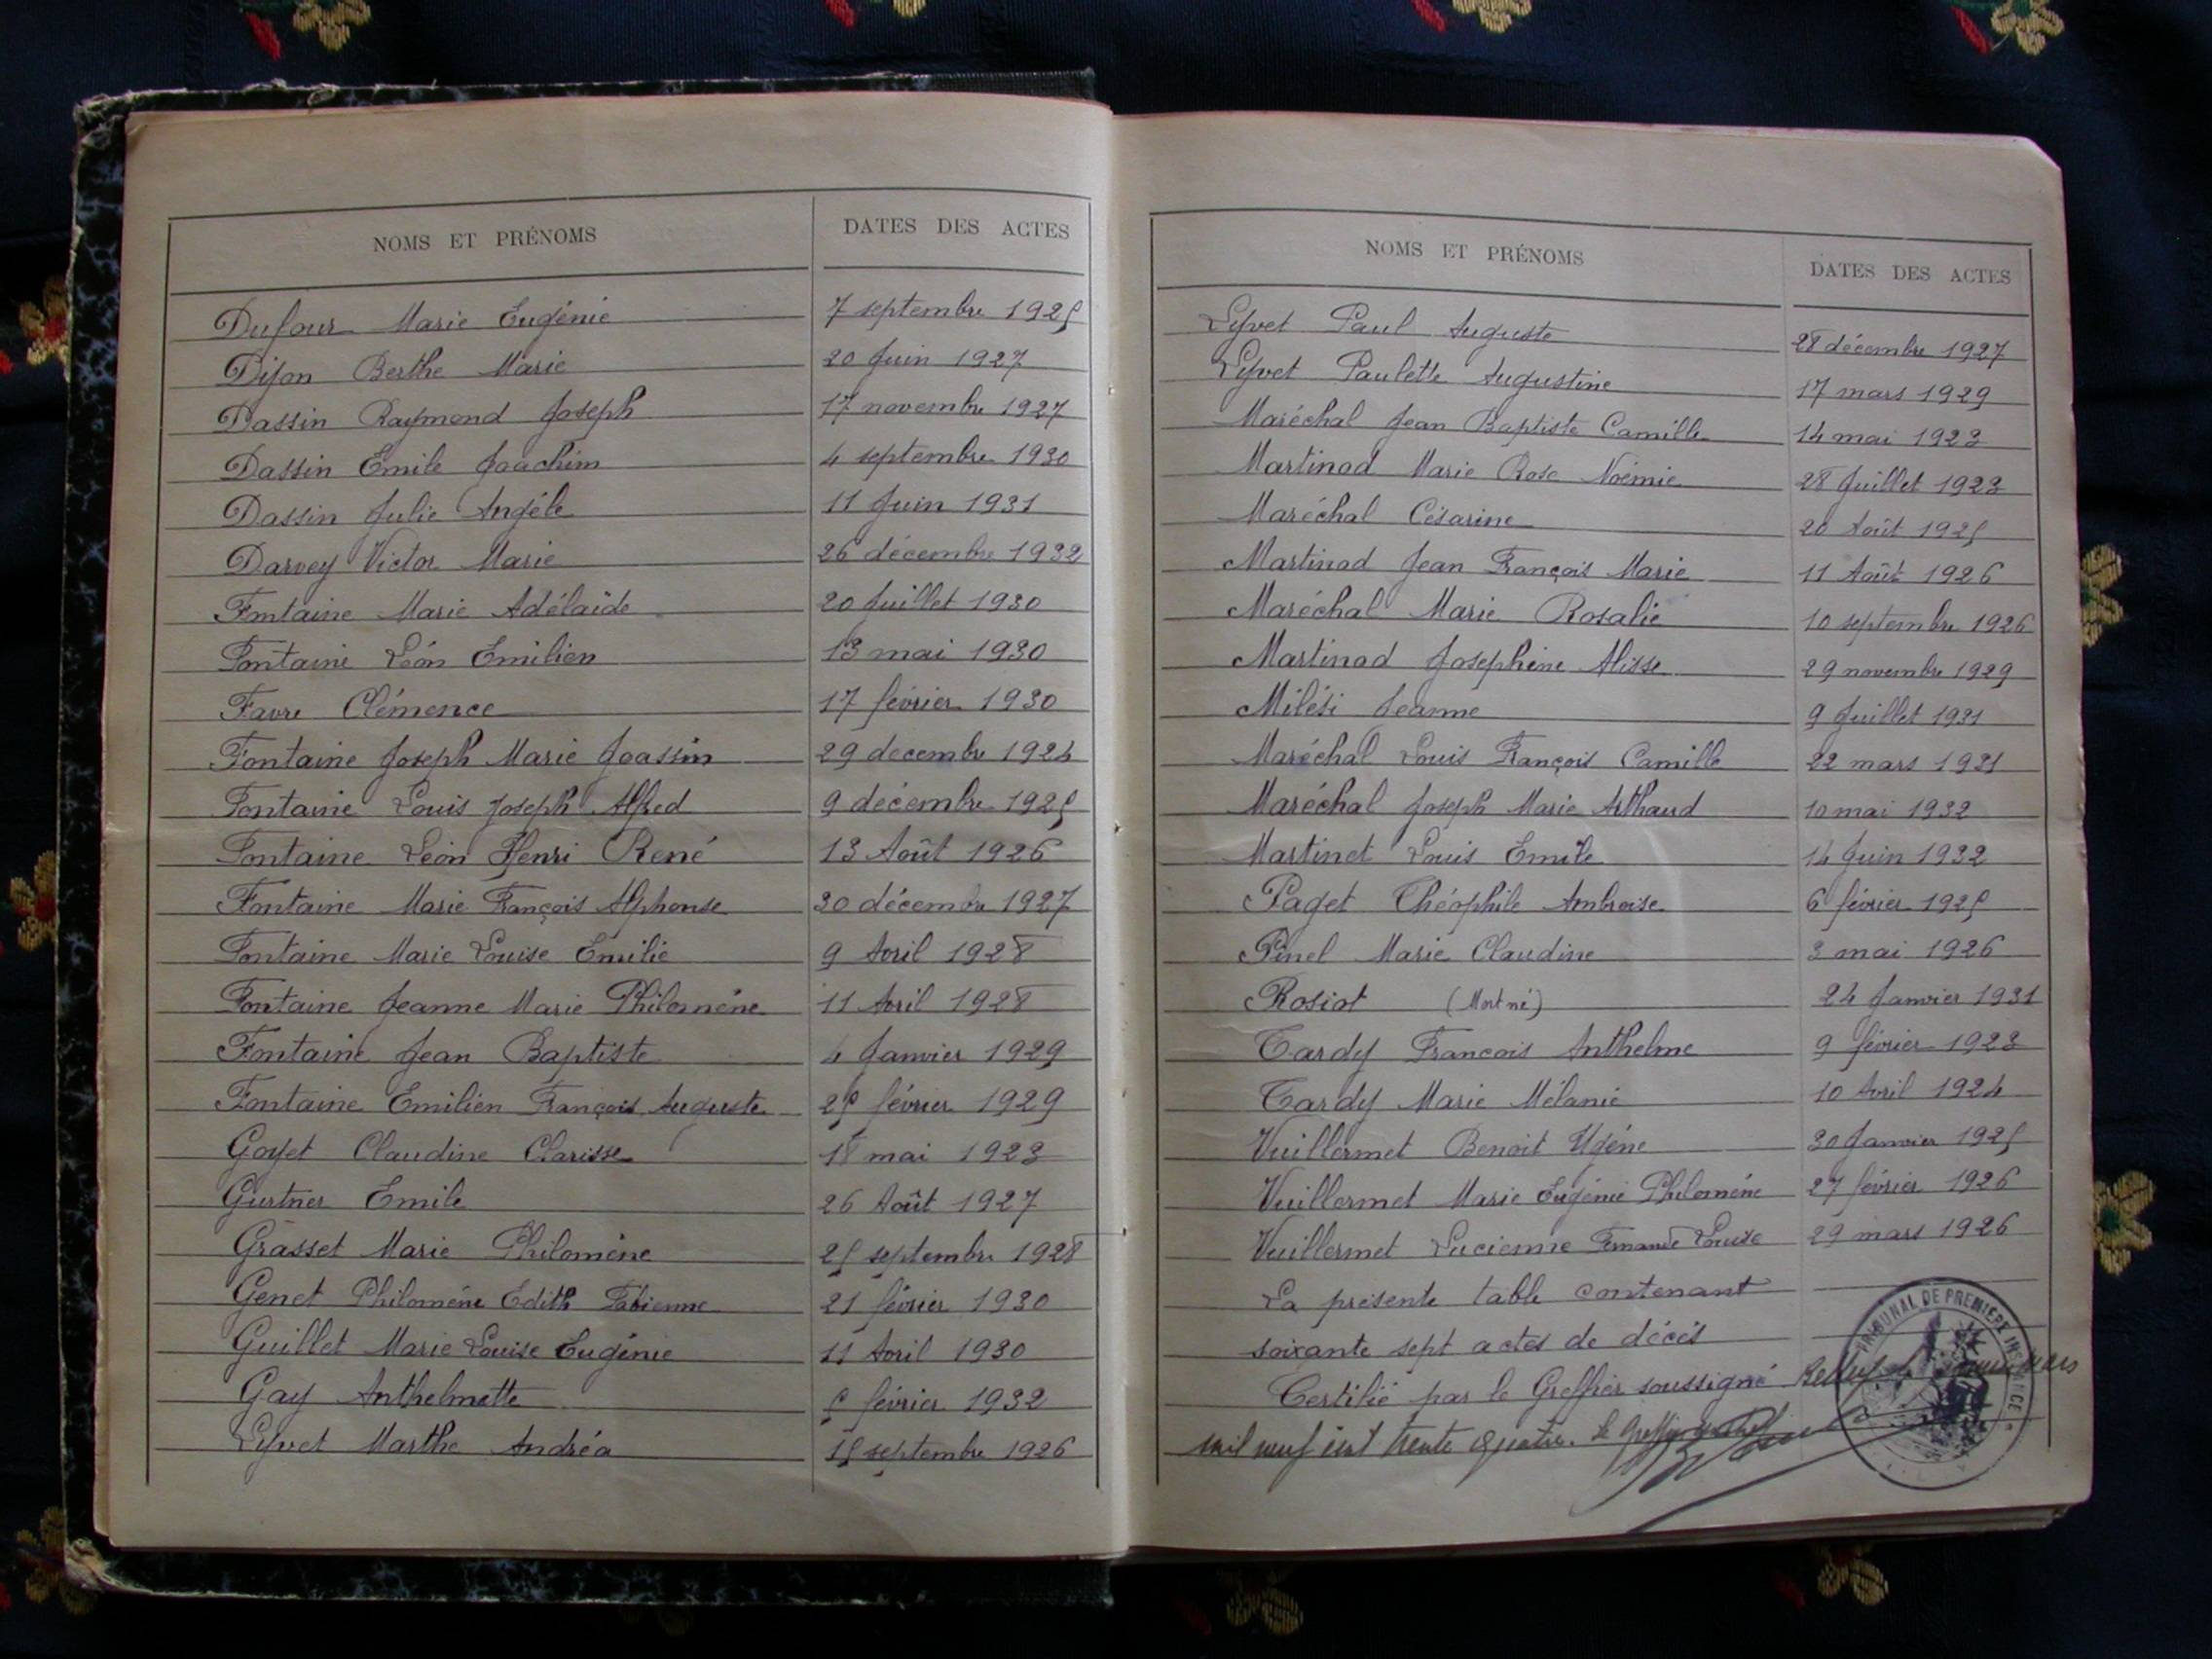 NOMS ET PRÉNOMS DATES DES ACTES
Dufour Marie Eugénie 7 septembre 1925
Dijon Berthe Marie 20 Juin 1927
Dassin Raymond Joseph 17 novembre 1927
Dassin Emile Joachim 4 septembre 1930
Dassin Julie Angèle 11 Juin 1931
Darvey Victor Marie 26 décembre 1932
Fontaine Marie Adélaïde 20 Juillet 1930
Fontaine Léon Emilien 13 mai 1930
Favre Clémence 17 février 1930
Fontaine Joseph Marie Joassin 29 décembre 1924
Fontaine Louis Joseph Alfred 9 décembre 1925
Fontaine Léon Henri René 13 Août 1926
Fontaine Marie François Alphonse 30 décembre 1927
Fontaine Marie Louise Emilie 9 Avril 1928
Fontaine Jeanne Marie Philomène 11 Avril 1928
Fontaine Jean Baptiste 4 Janvier 1929
Fontaine Emilien François Auguste 25 février 1929
Goyet Claudine Clarisse 18 mai 1923
Gurtner Emile 26 Août 1927
Grasset Marie Philomène 25 septembre 1928
Genet Philomène Edith Fabienne 21 février 1930
Guillet Marie Louise Eugénie 11 Avril 1930
Gay Anthelmette 5 février 1932
Lyvet Marthe Andréa 15 septembre 1926
NOMS ET PRÉNOMS DATES DES ACTES
Lyvet Paul Auguste 28 décembre 1927
Lyvet Paulette Augustine 17 mars 1929
Maréchal Jean Baptiste Camille 14 mai 1923
Martinod Marie Rose Noémie 28 Juillet 1923
Maréchal Césarine 20 Août 1925
Martinod Jean François Marie 11 Août 1926
Maréchal Marie Rosalie 10 septembre 1926
Martinod Joséphine Alisse 29 novembre 1929
Milési Jeanne 9 Juillet 1931
Maréchal Louis François Camille 22 mars 1931
Maréchal Joseph Marie Arthaud 10 mai 1932
Martinet Louis Emile 14 Juin 1932
Paget Théophile Ambroise 6 février 1925
Pinel Marie Claudine 3 mai 1926
Rosiat (Mort né) 24 Janvier 1931
Tardy François Anthelme 9 février 1923
Tardy Marie Mélanie 10 Avril 1924
Vuillermet Benoit Ugéne 30 Janvier 1925
Vuillermet Marie Eugénie Philomène 27 février 1926
Vuillermet Lucienne Fernande Louise 29 mars 1926
La présente table contenant
soixante sept actes de décès
Certifié par le Greffier soussigné Belley mars
mil neuf cent trente quatre. Le Greffier
TRIBUNAL DE PREMIERE INSTANCE